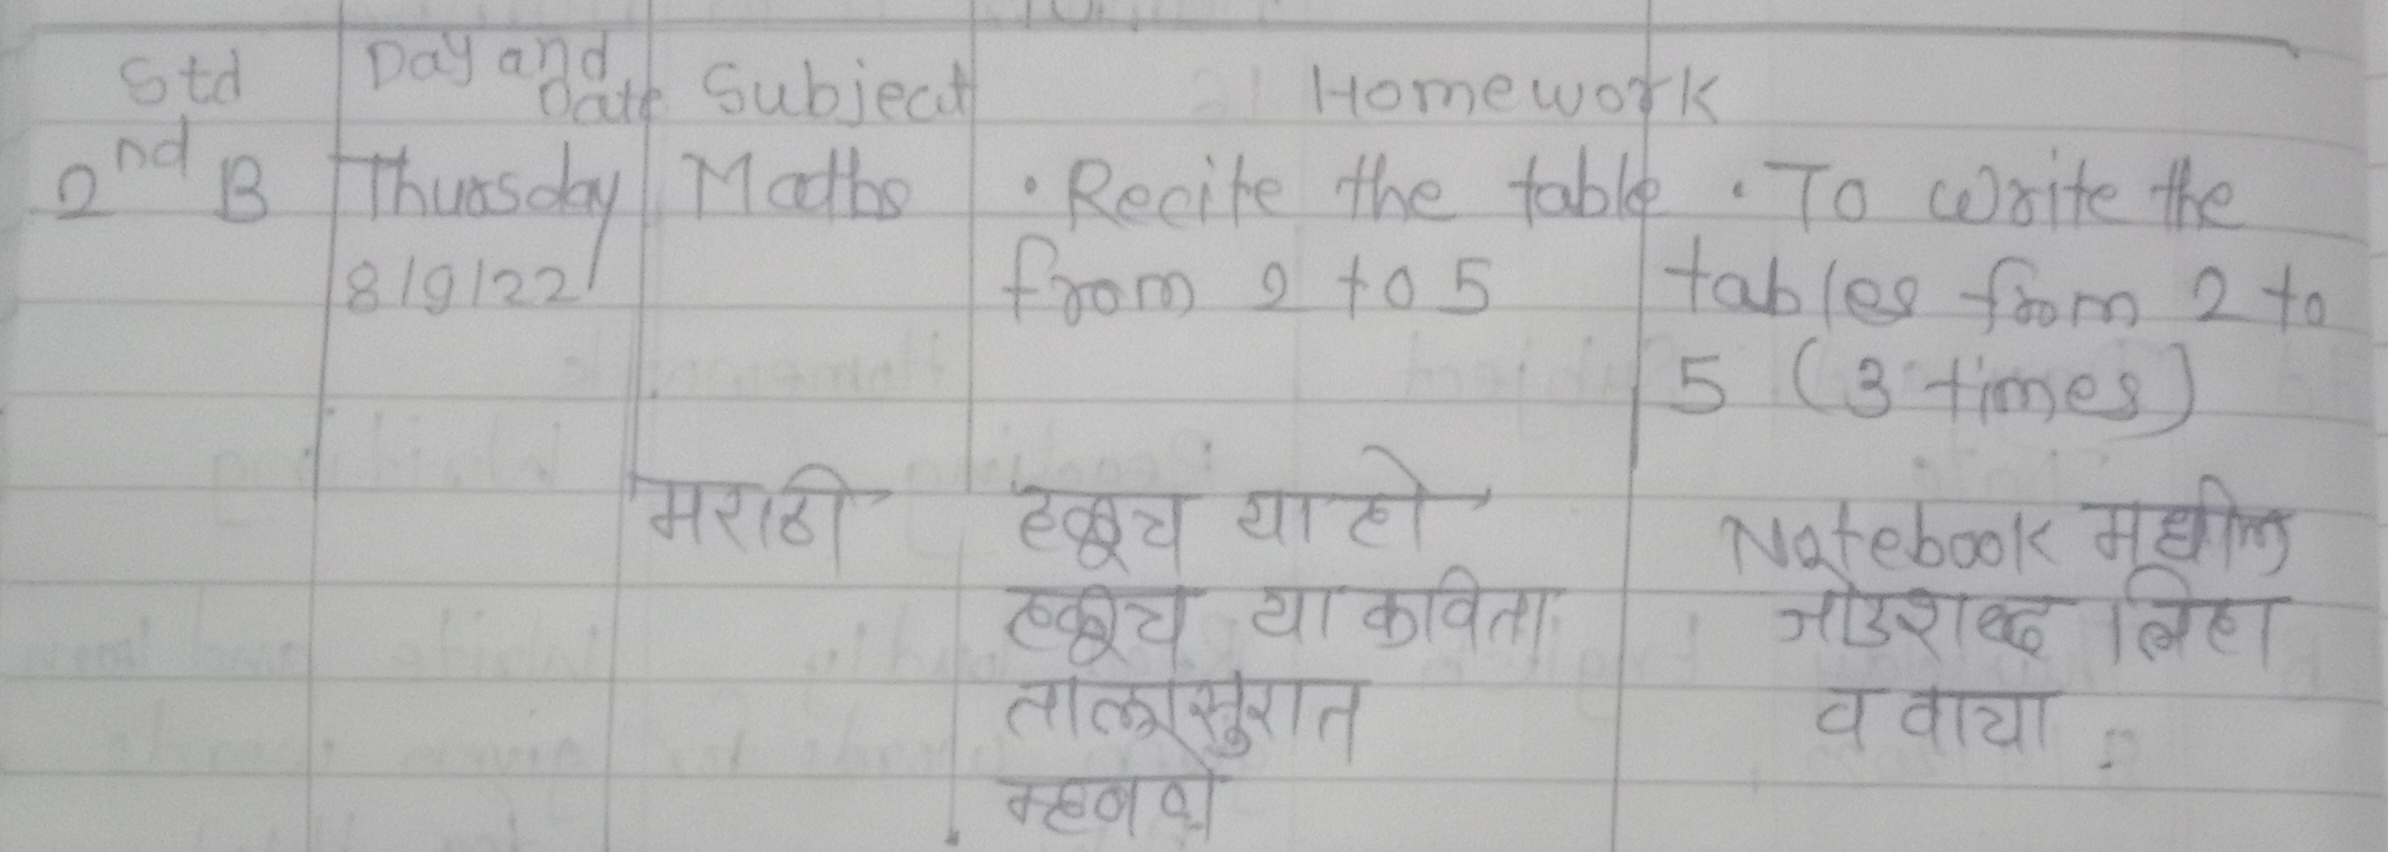 Std Day and Date Subject Homework
2nd B Thursday Maths • Recite the table • To write the
8/9/22 from 2 to 5 tables from 2 to
5 (3 times)
मराठी हळूच या हो Notebook मधील
हळूच या कविता जोडशब्द लिहा
तालासुरात व वाचा.
म्हणणे